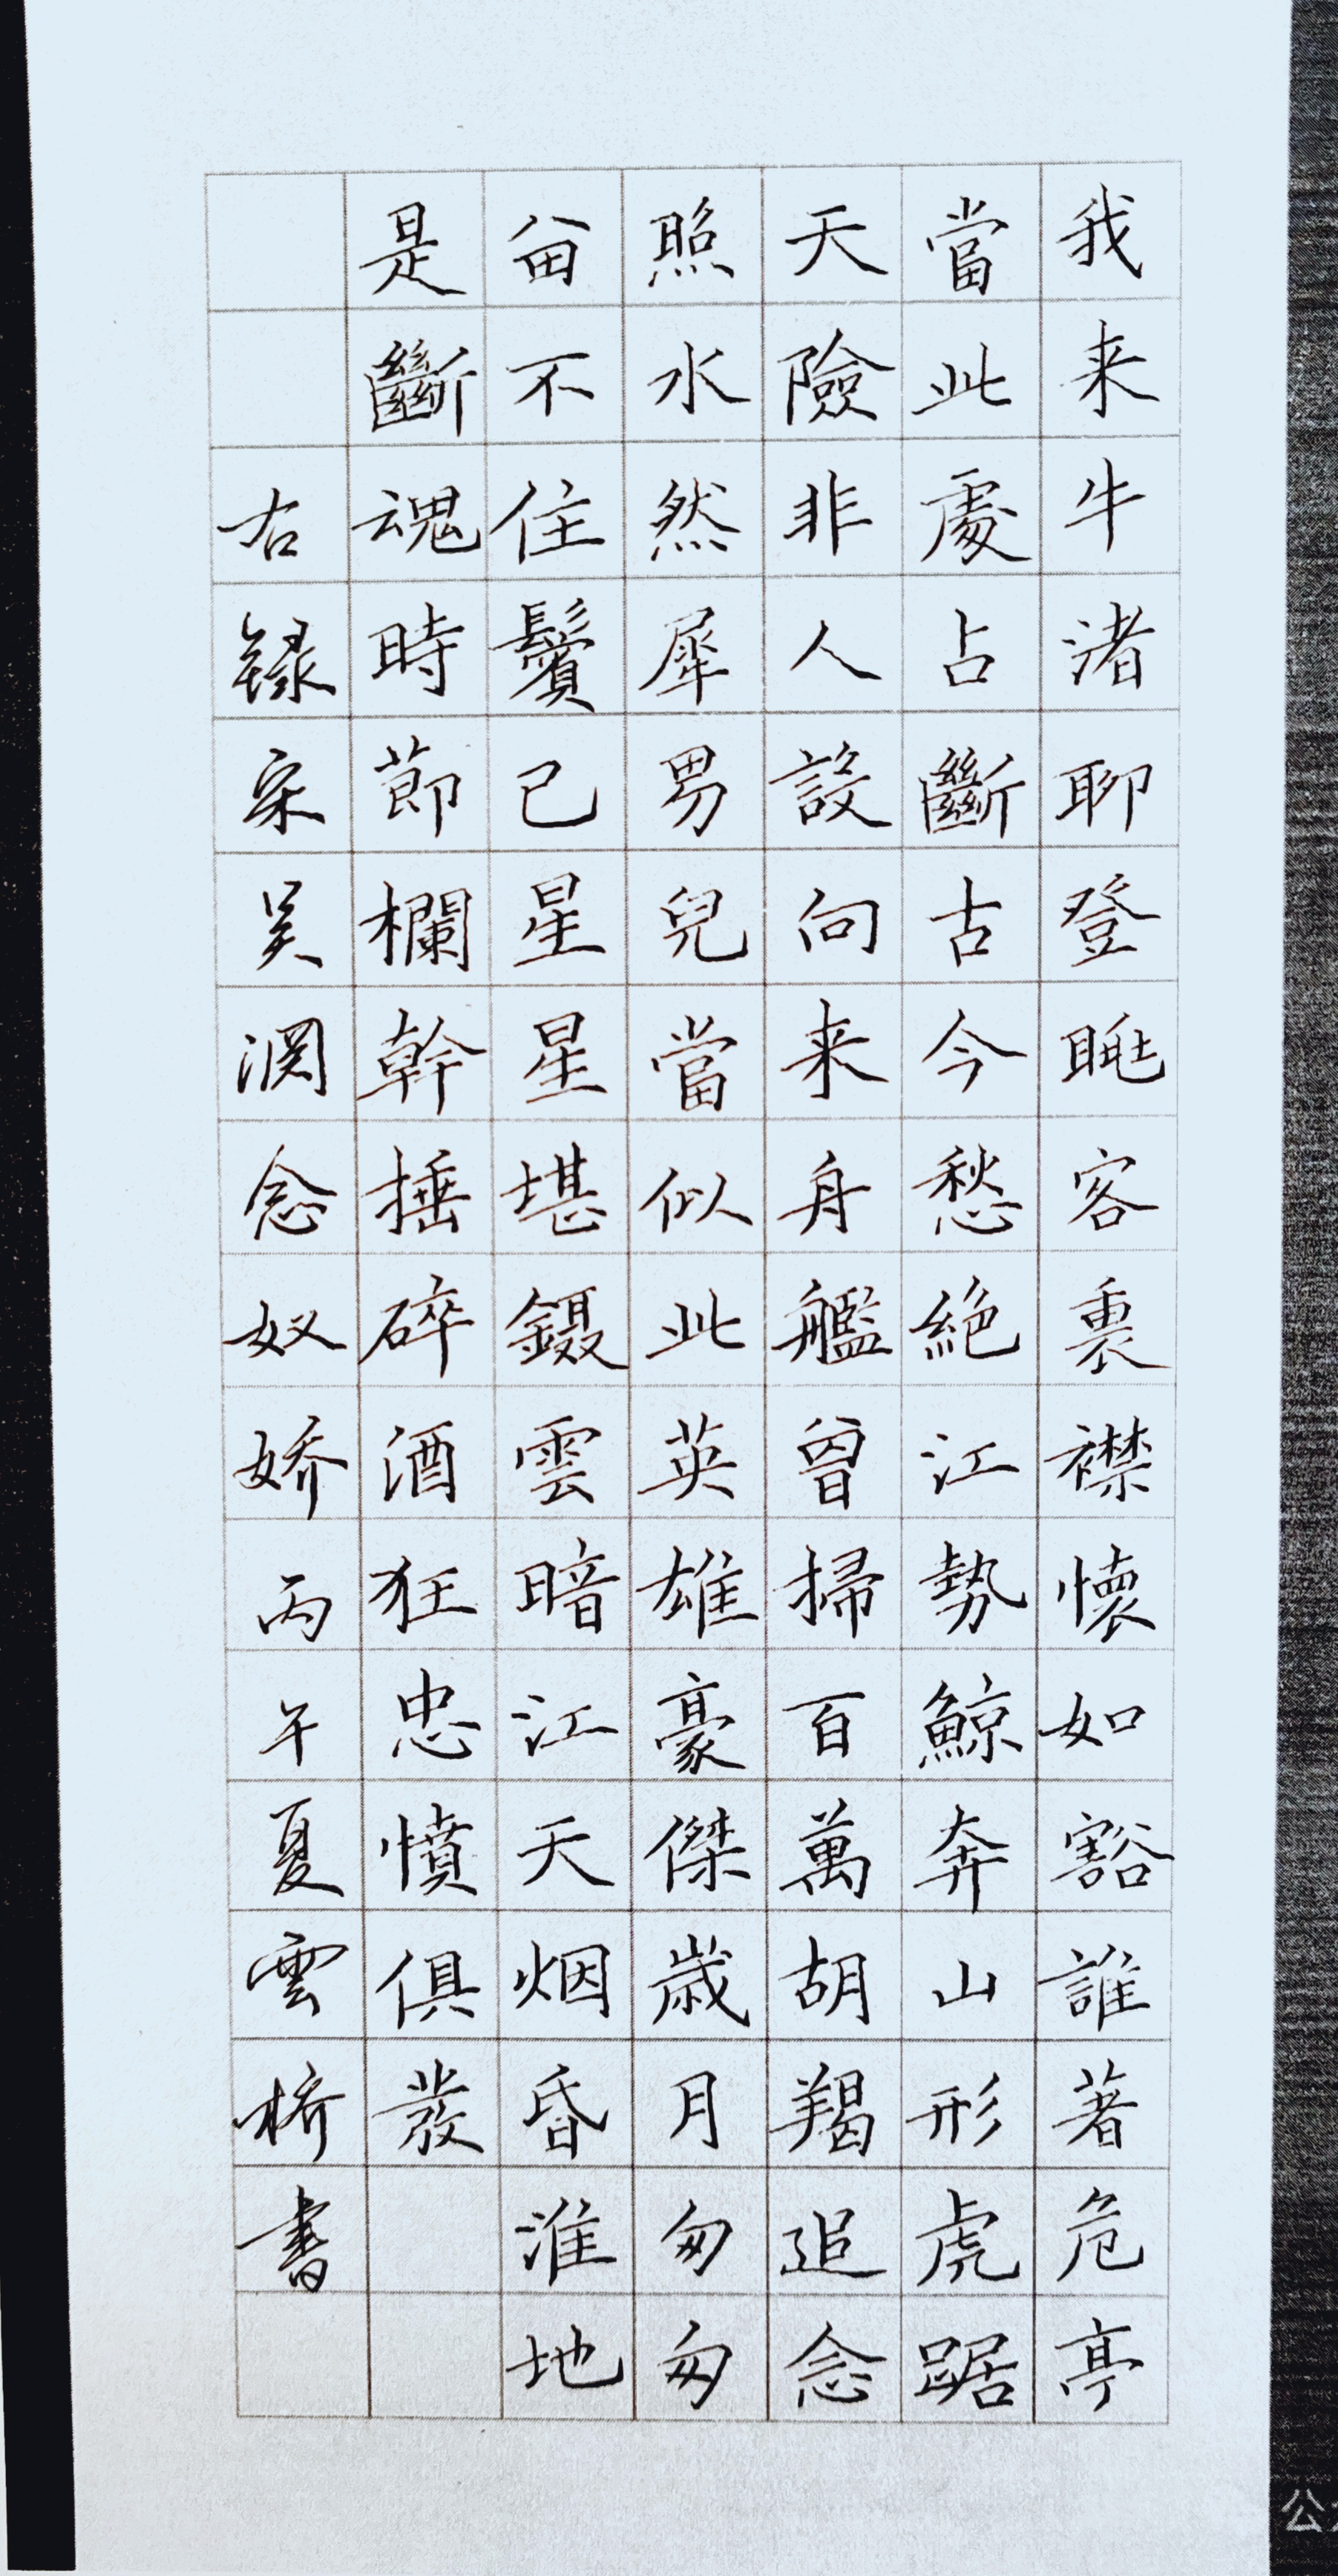 我来牛渚聊登眺客裏襟懷如豁誰著危亭
當此處占斷古今愁絶江勢鯨奔山形虎踞
天險非人設向来舟艦曾掃百萬胡羯追念
照水然犀男兒當似此英雄豪傑歲月匆匆
留不住鬢已星星堪鑷雲暗江天烟昏淮地
是斷魂時節欄幹捶碎酒狂忠憤俱發
右錄宋吴淵念奴娇丙午夏雲桥書
公